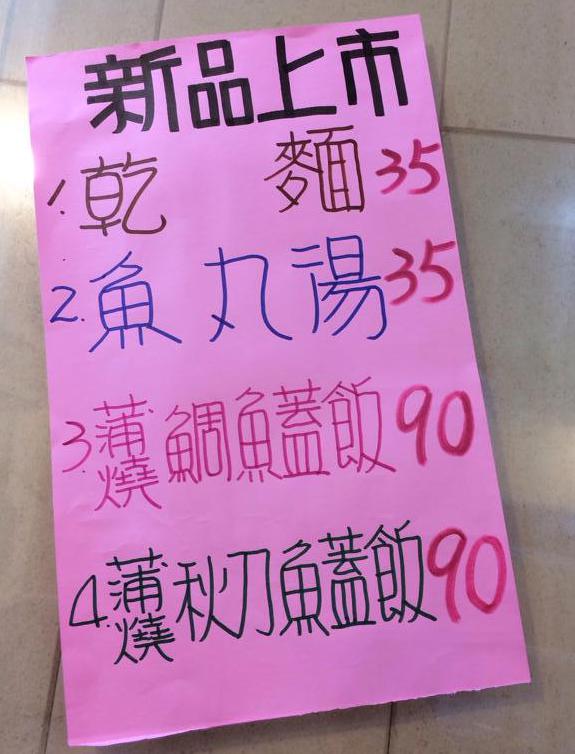 新品上市
1.乾 麵 35
2.魚丸湯 35
3.蒲燒鯛魚蓋飯 90
4.蒲燒秋刀魚蓋飯 90